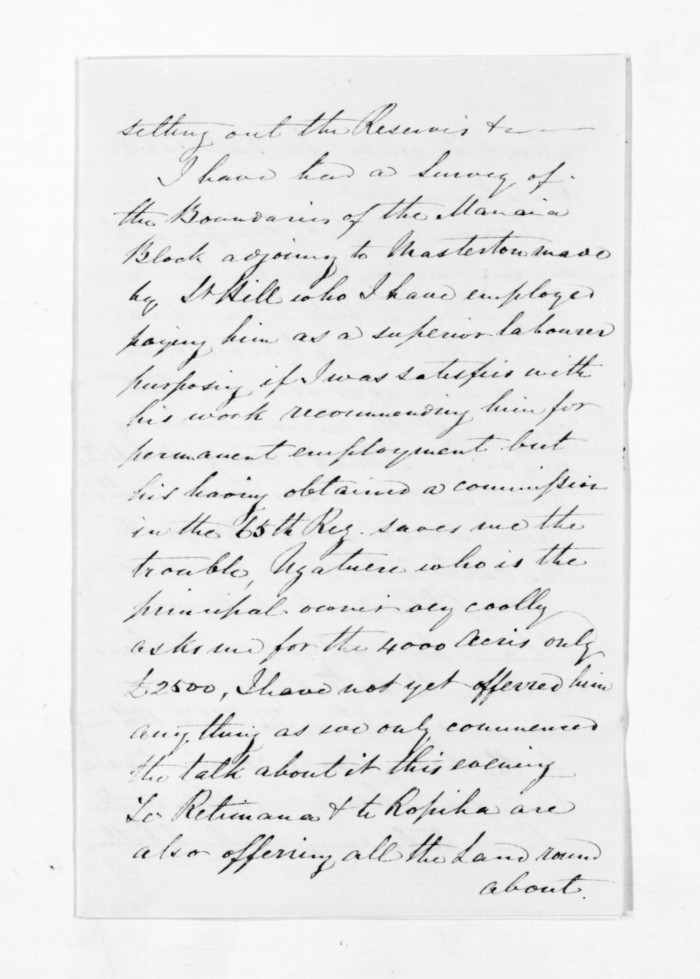 setting out the Reserves &c
I have had a Survey of
the Boundaries of the Manaia
Block adjoining to Masterton made
by St Hill who I have employed
paying him as a superior labourer
purposing if I was satisfied with
his work recommending him for
permanent employment but
his having obtained a commission
in the 65th Reg. saves me the
trouble, Ngatuere who is the
principal owner very coolly
asks me for the 4000 Acres only
£2500, I have not yet offerred him
anything as we only commenced
the talk about it this evening
Te Retimana & te Ropiha are
also offering all the Land round
about.